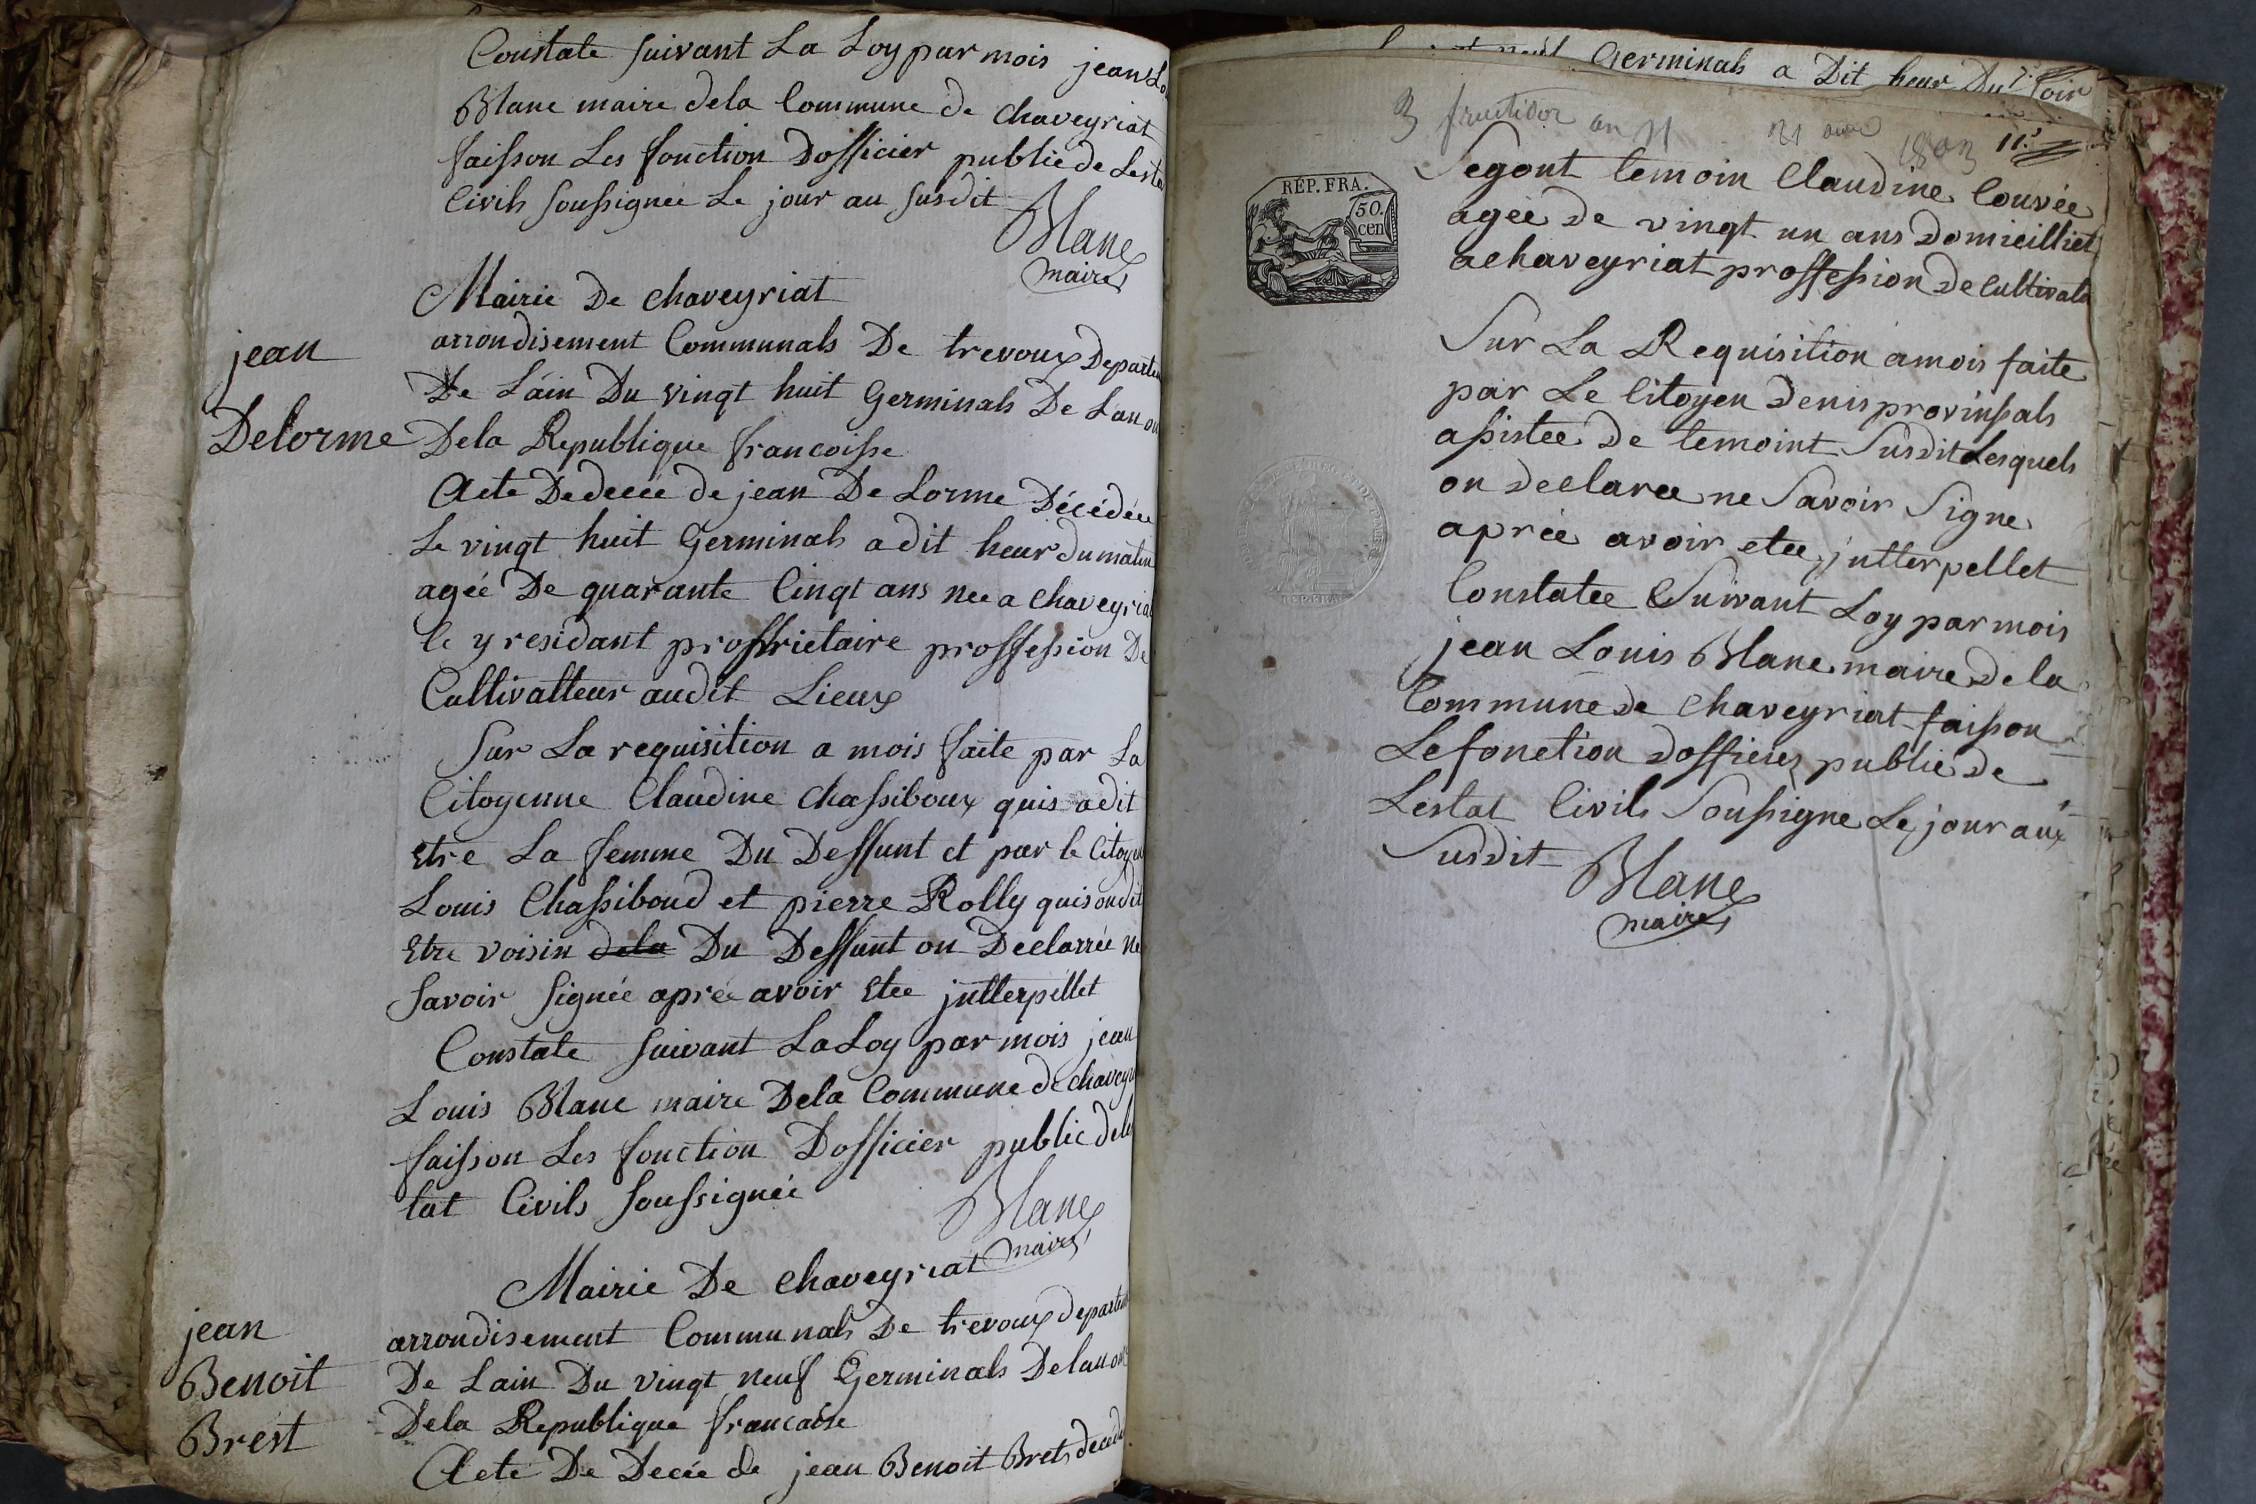 Constate suivant La Loy par mois jean Lo
Blanc maire dela Commune de chaveyriat
faisson Les fonction Dofficier public de Lesta
Civils soussignée Le jour au susdit
Blanc
maire
Mairie De chaveyriat
arrondisement Communals De trevoux Departem
De Láin Du vingt huit Germinals De Lan on
Dela Republique francoisse
jean
Delorme
Acte Dedecée de jean De Lorme Décédée
Le vingt huit Germinals a dit heur du matin
agée De quarante Cingt ans née a chaveyria
le y residant proffrietaire proffession De
Cultivatteur audit Lieux
Sur La requisition a mois faite par La
Citoyenne Claudine chassiboux quis a dit
Etre La femme Du Deffunt et par le Citoyen
Louis Chassiboud et pierre Rolly quis on dit
Etre voisin dela Du Deffunt on Declarrée ne
savoir signée aprée avoir Etee jntterpellet
Constate suivant La Loy par mois jean
Louis Blanc maire Dela Commune de chaveyr
faisson Les fonction Dofficier public de les
tat Civils soussignée
Blanc
maire
Mairie De chaveyriat
arrondisement Communals De trevoux departem
De Lain Du vingt neuf Germinals De lan on
Dela Republique francaise
jean
Benoit
Brest
Acte De Decée de jean Benoit Brets decede
Germinals a Dit heur Du soir
3 fructidor an 11 21 aout 1803
11.e
RÉP. FRA.
50.
cen
Segont temoin Claudine Couvée
agée de vingt un ans domicilliet
a chaveyriat proffession de Cultivat
Sur La Requisition a mois faite
par Le Citoyen denis provinssals
assistee de temoint Susdit Lesquels
on declaree ne Savoir Signe
aprée avoir etee jntterpellet
Constatee Suivant Loy par mois
jean Louis Blanc maire de la
Commune de chaveyriat faisson
Le fonction dofficier public de
Lestat Civils Soussigne Le jour aux
Susdit
Blanc
maire